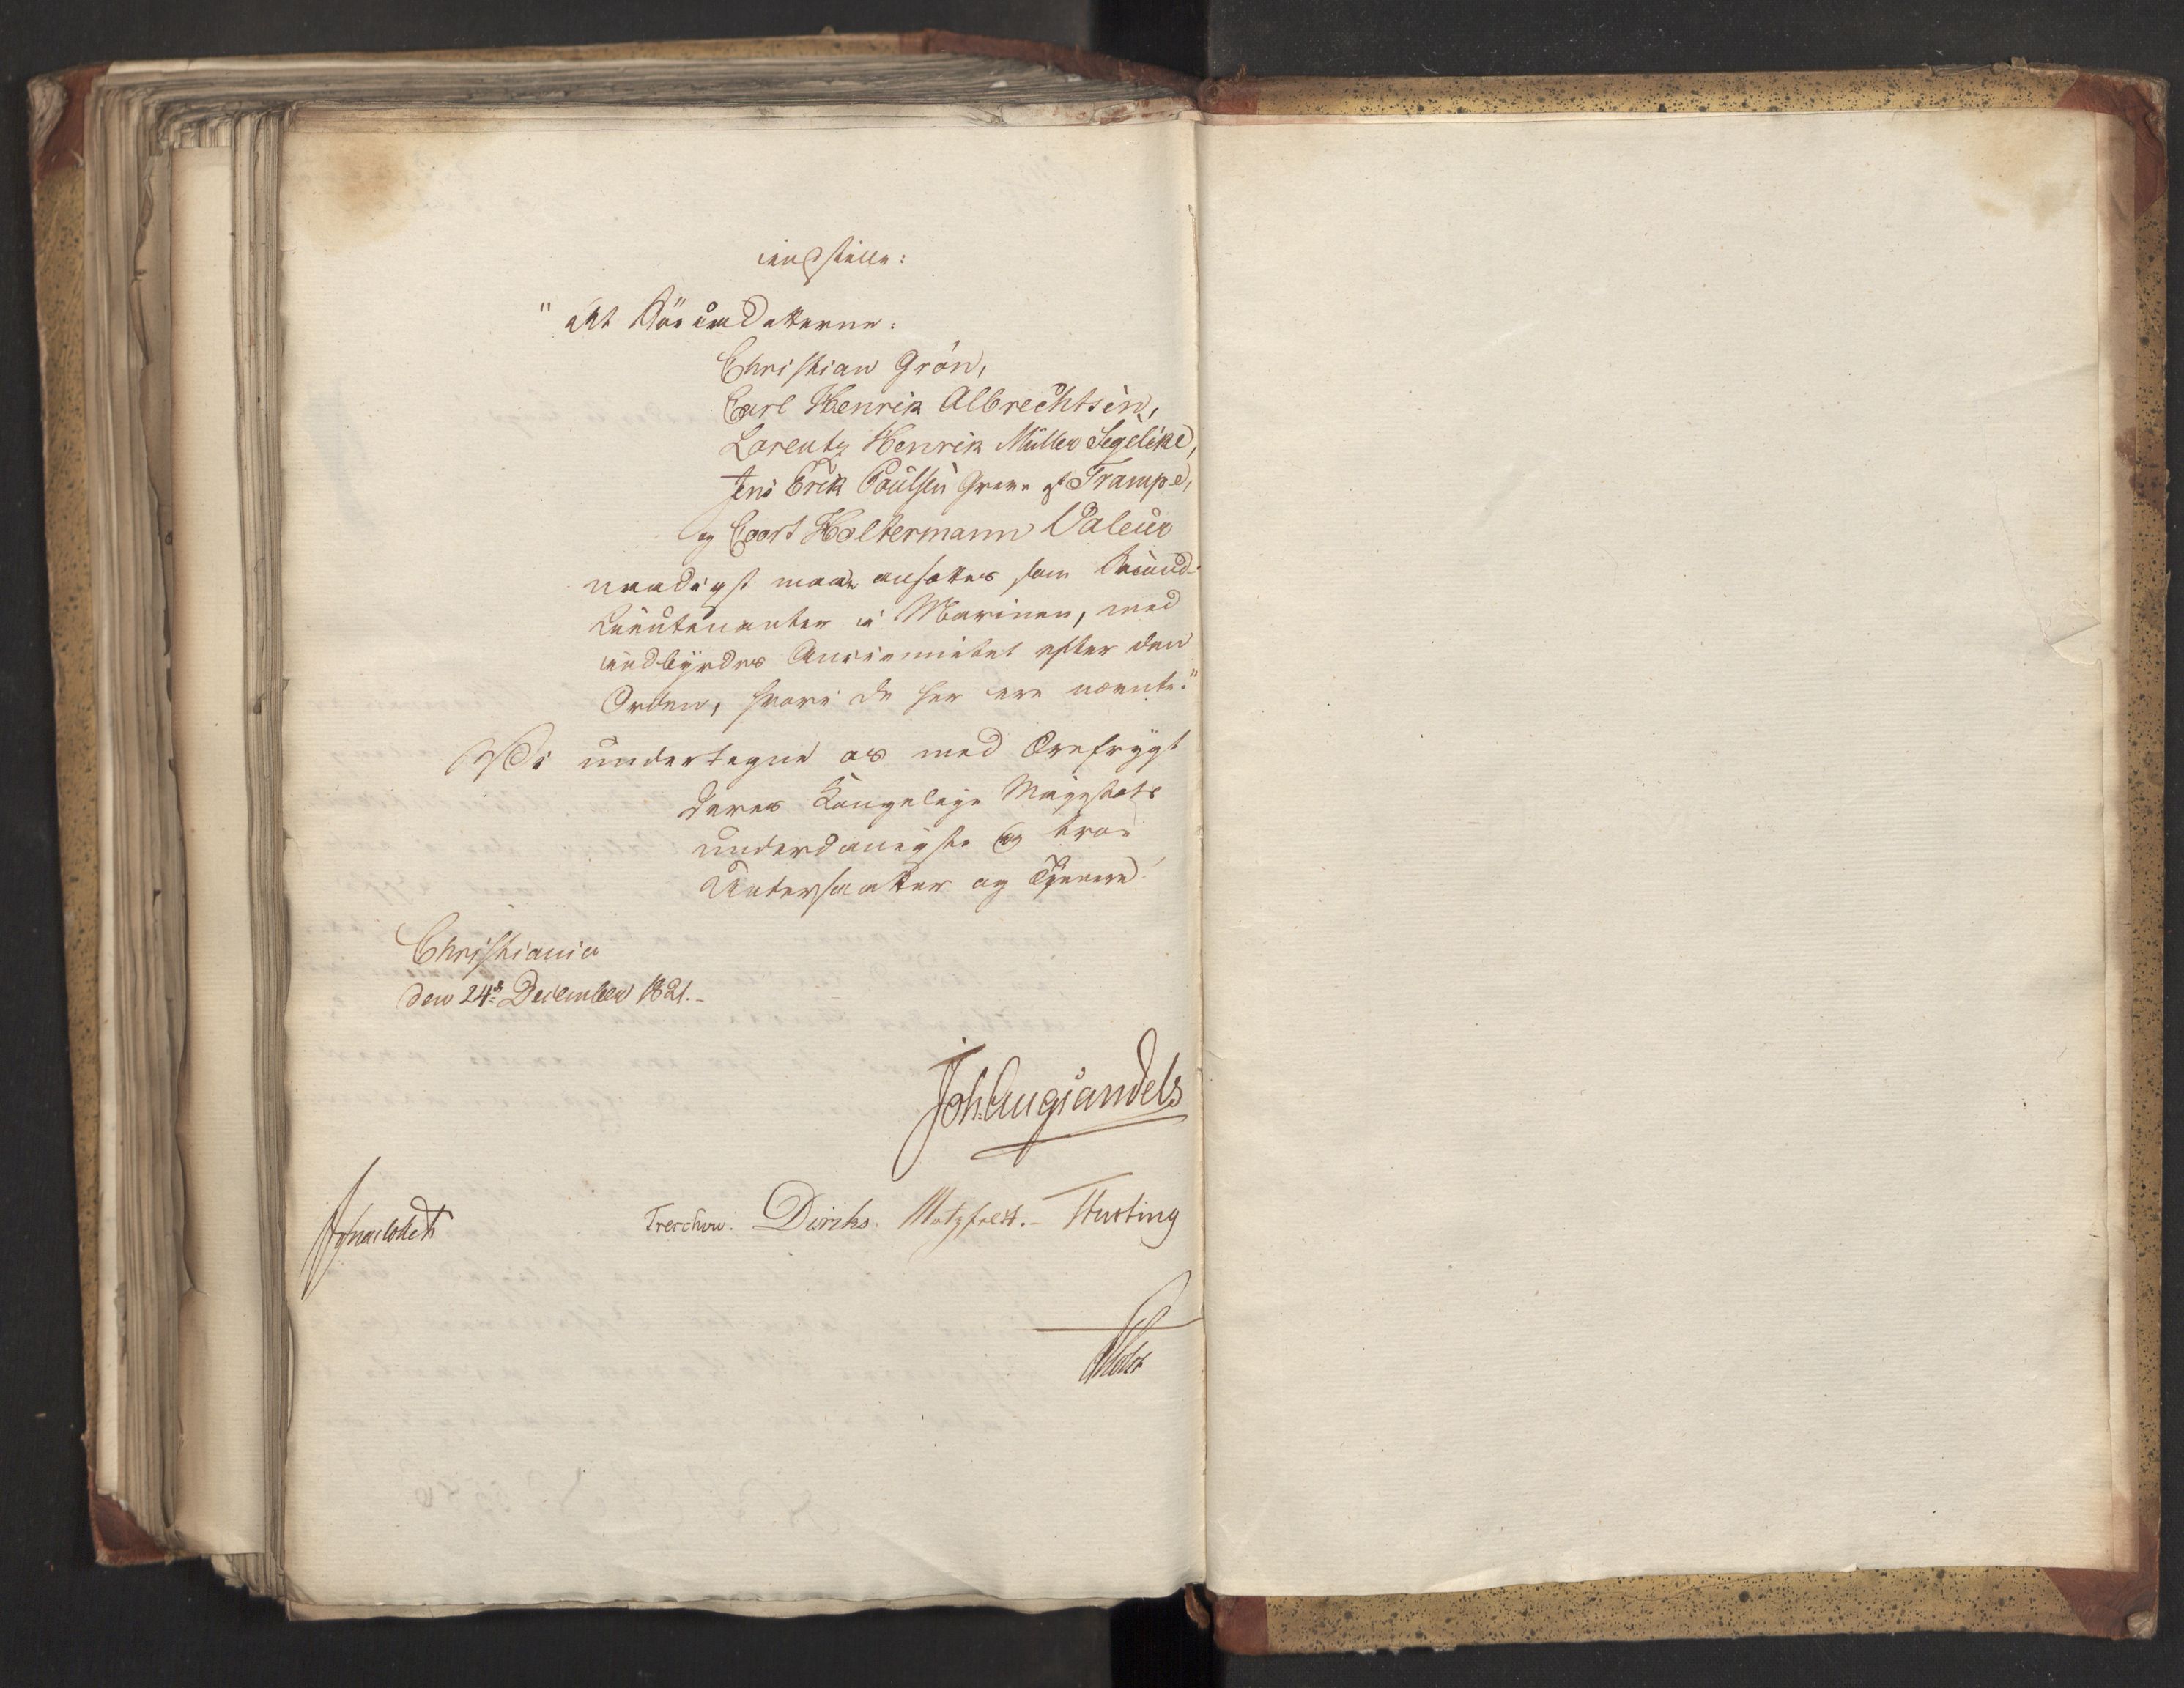 indstille:
"At Söecadetterne:
Christian Grön,
Carl Henrik Albrechtsen,
Lorentz Henrik Müller Segelcke,
Jens Erik Poulsen Greve af Trampe,
og Coort Holtermann Valeur
naadigst maae ansættes som Second-
Lieutenanter i Marinen, med
indbyrdes Anciennitet efter den
Orden, hvori de her ere nævnte."
Vi undertegne os med Ærefrygt
Deres Kongelige Majestæts
underdanigste og troe
Undersaatter og Tjenere.
Christiania
den 24de December 1821.-
Joh. Aug. Sandels
Treschow. Diriks. Motzfeldt.- Fasting
Holst